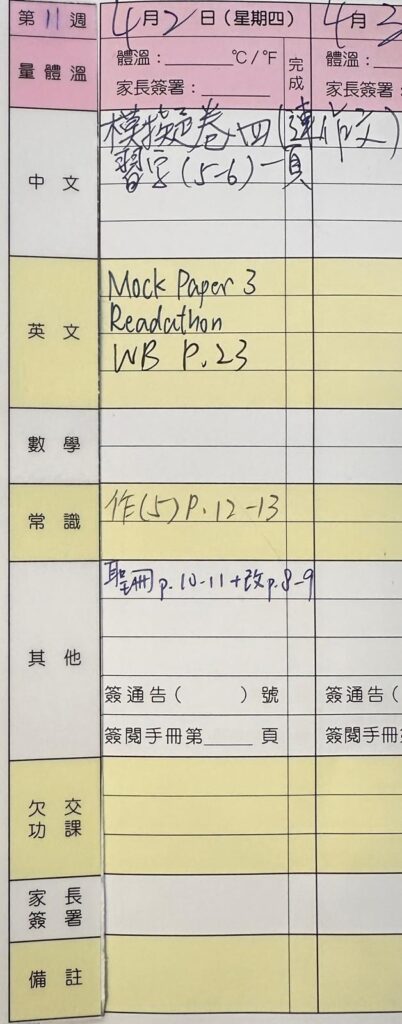 第11週 4月2日(星期四) 4月3
量體溫 體溫：____ °C/°F 完成 體溫：
家長簽署：____ 家長簽署：
中文 模擬卷四(連作文)
習字(5-6)一頁
英文 Mock Paper 3
Readathon
WB P.23
數學
常識 作(5)P.12-13
其他 聖冊p.10-11+改p.8-9
簽通告( )號 簽通告(
簽閱手冊第____頁 簽閱手冊
欠交功課
家長簽署
備註